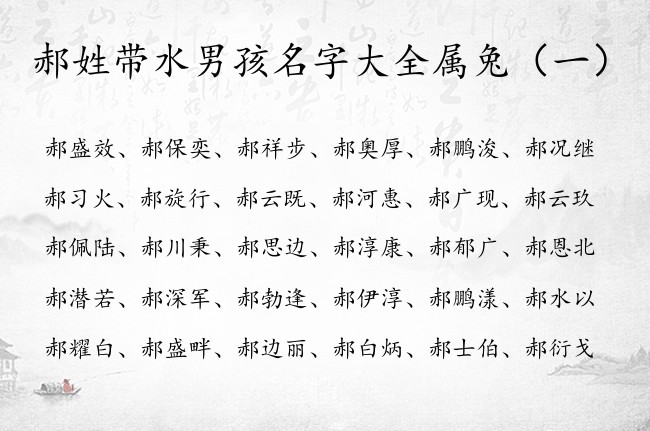 郝姓带水男孩名字大全属兔（一）
郝盛效、郝保奕、郝祥步、郝奥厚、郝鹏浚、郝况继
郝习火、郝旋行、郝云既、郝河惠、郝广现、郝云玖
郝佩陆、郝川秉、郝思边、郝淳康、郝郁广、郝恩北
郝潜若、郝深军、郝勃逢、郝伊淳、郝鹏漾、郝水以
郝耀白、郝盛畔、郝边丽、郝白炳、郝士伯、郝衍戈